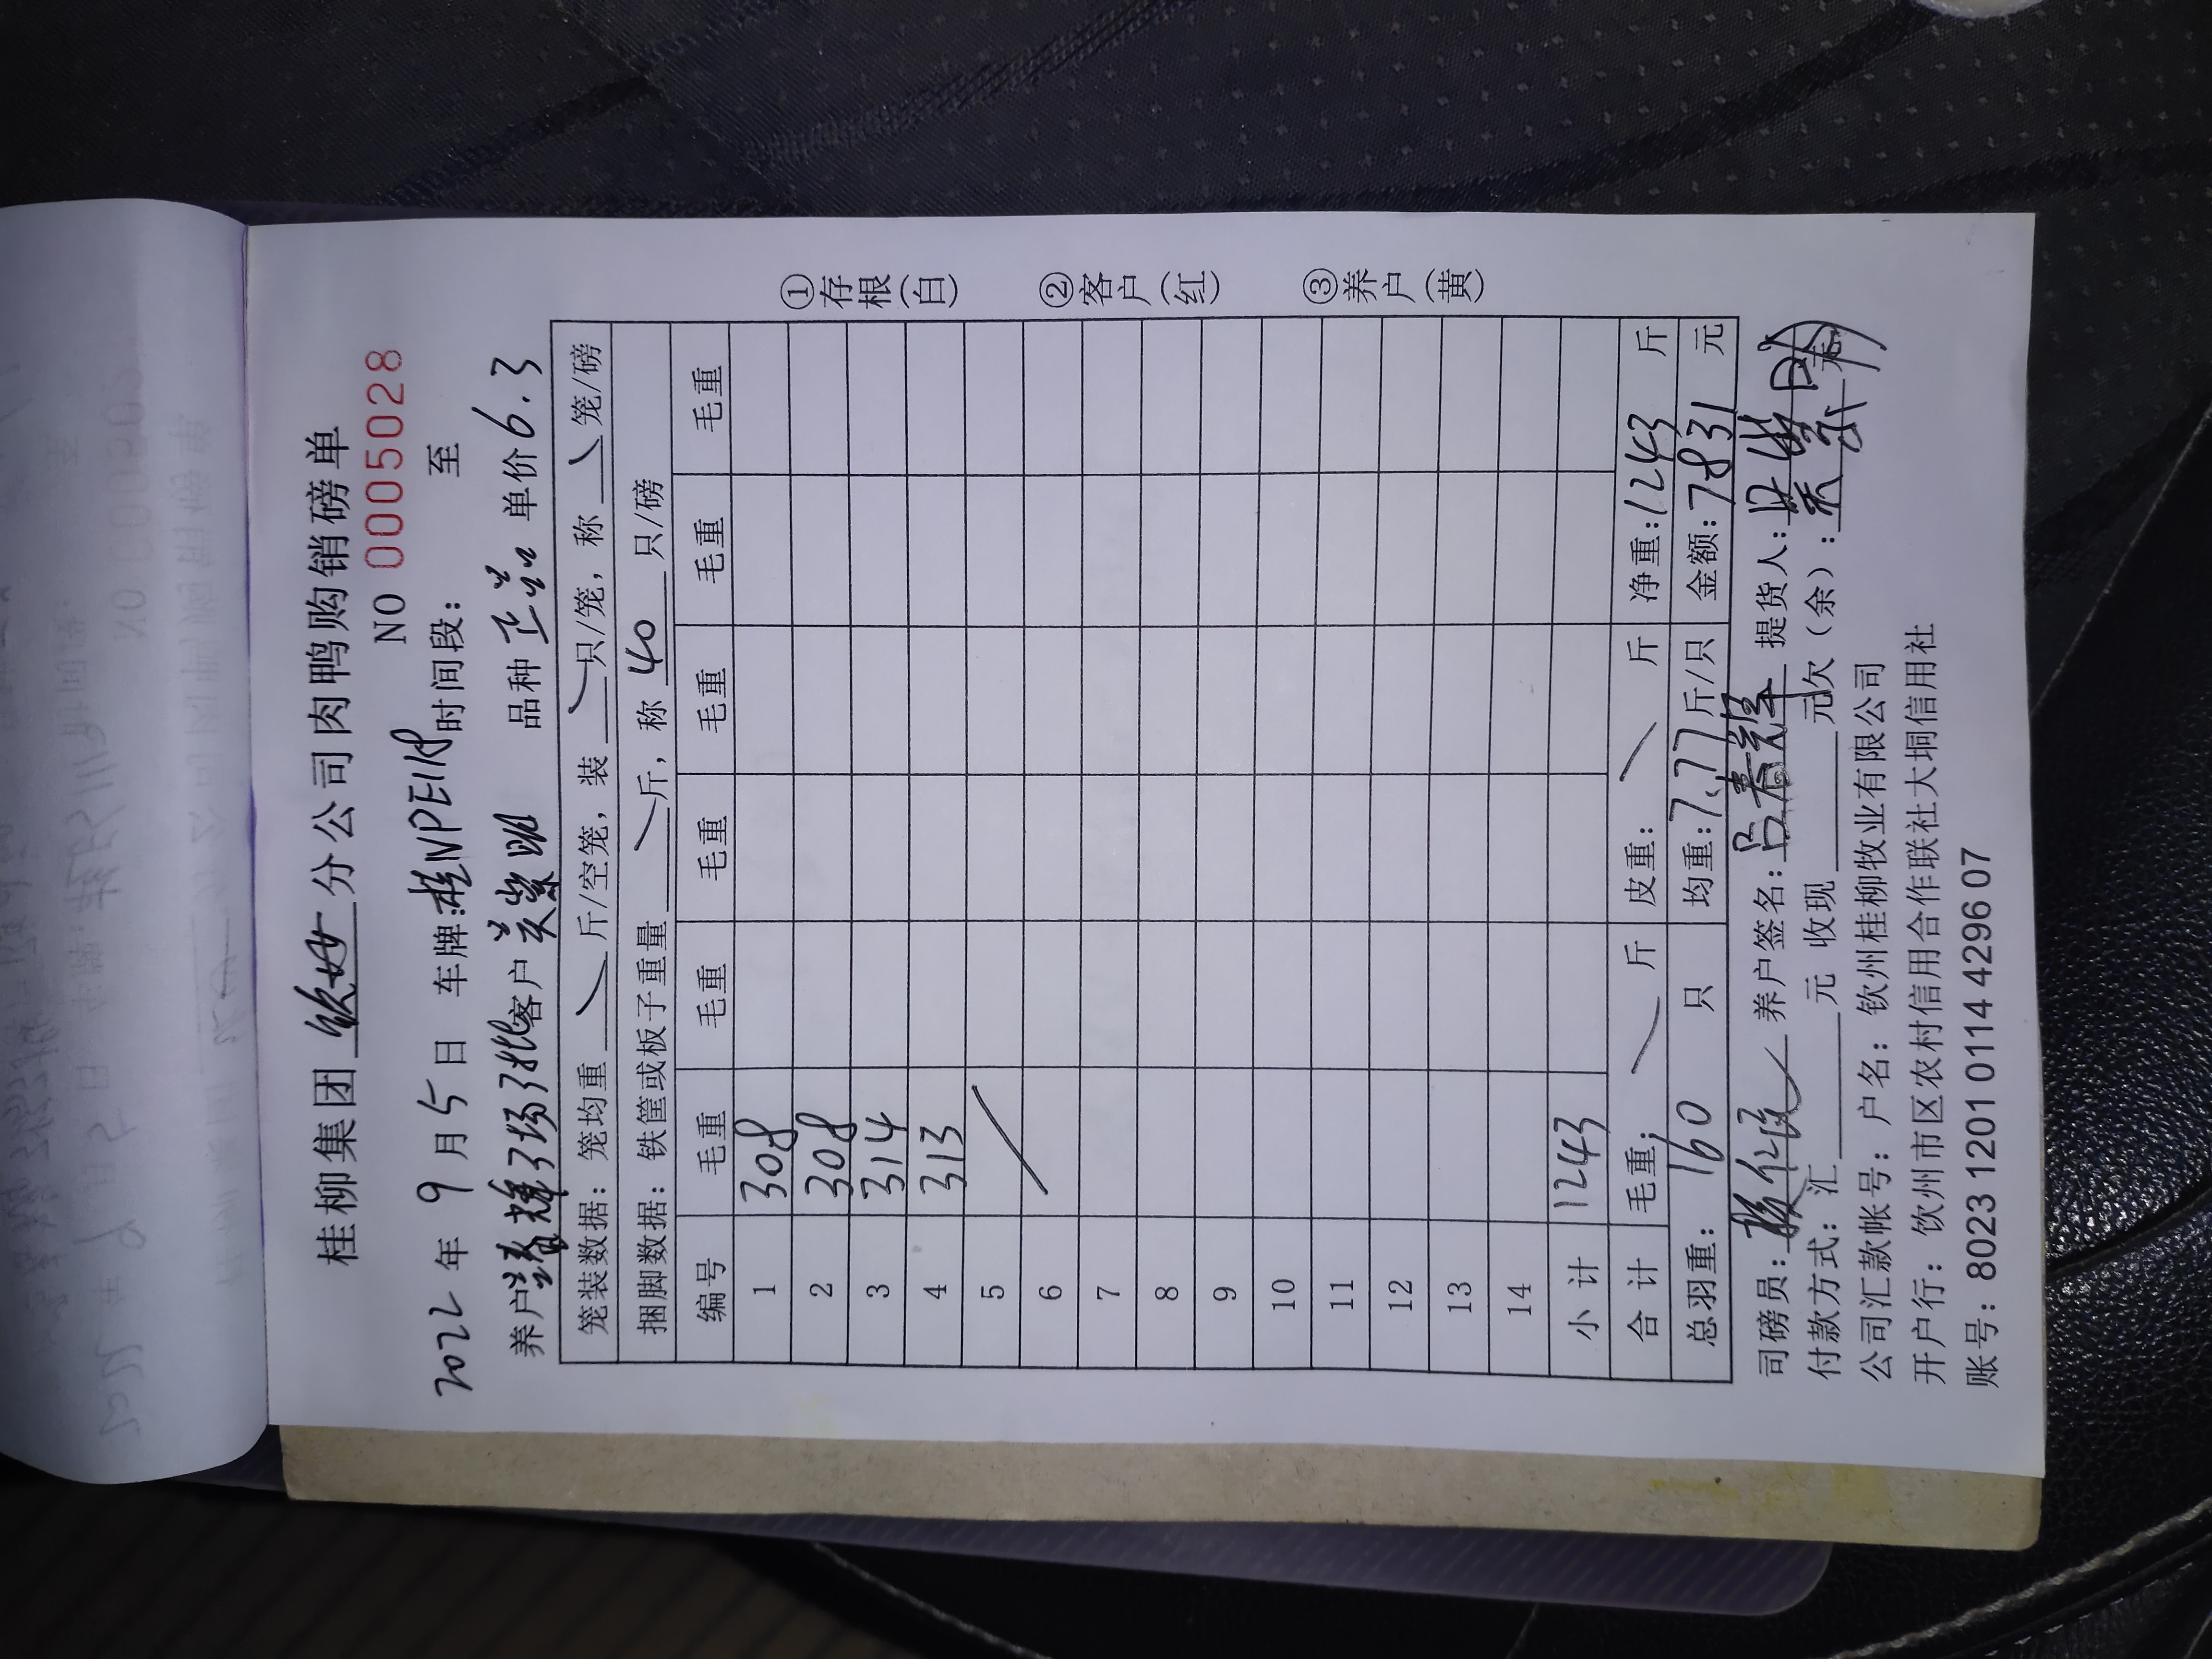 桂柳集团 钦州 分公司肉鸭购销磅单
NO 0005028
2022 年 9 月 5 日 车牌:桂NPE118 时间段: 至
养户 春辉3场3批 客户 紫明 品种 正品 单价 6.3
笼装数据: 笼均重 斤/空笼, 装 只/笼, 称 笼/磅
捆脚数据: 铁筐或板子重量 斤, 称 40 只/磅
编号 毛重 毛重 毛重 毛重 毛重 毛重
1 308
2 308
3 314
4 313
5
6
7
8
9
10
11
12
13
14
小计 1243
合计 毛重: 斤 皮重: 斤 净重: 1243 斤
总羽重: 160 只 均重: 7.77 斤/只 金额: 7831 元
司磅员: 养户签名: 吕春辉 提货人:
付款方式: 汇 元 收现 元欠(余): 元
公司汇款帐号: 户名: 钦州桂柳牧业有限公司
开户行: 钦州市区农村信用合作联社大垌信用社
账号: 8023 1201 0114 4296 07
①存根(白)
②客户(红)
③养户(黄)